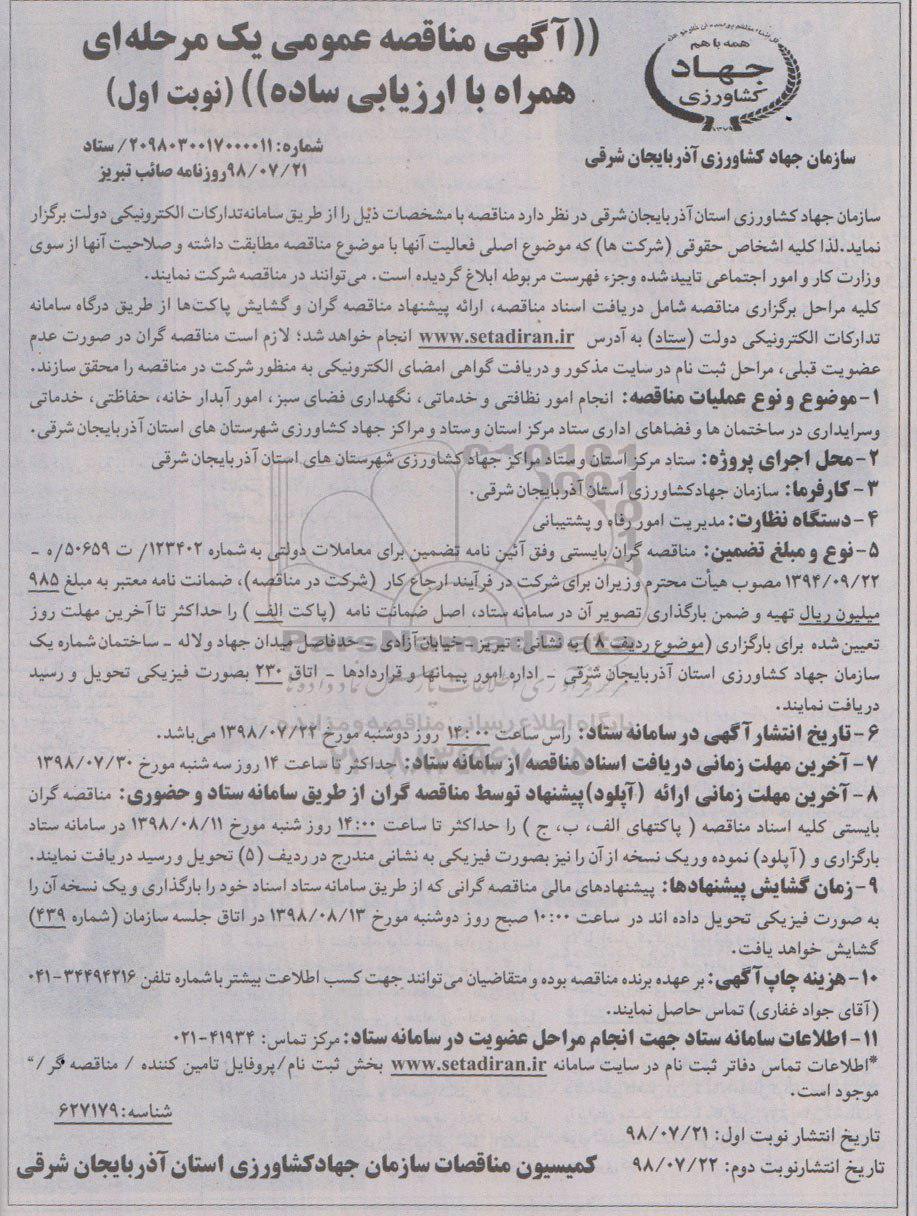 ((آگهی مناقصه عمومی یک مرحله‌ای
همراه با ارزیابی ساده)) (نوبت اول)
همه با هم
جهاد
کشاورزی
سازمان جهاد کشاورزی آذربایجان شرقی
شماره: ۲۰۹۸۰۳۰۰۱۷۰۰۰۰۱۱/ ستاد
۹۸/۰۷/۲۱روزنامه صائب تبریز
سازمان جهاد کشاورزی استان آذربایجان شرقی در نظر دارد مناقصه با مشخصات ذیل را از طریق سامانه تدارکات الکترونیکی دولت برگزار
نماید.لذا کلیه اشخاص حقوقی (شرکت ها) که موضوع اصلی فعالیت آنها با موضوع مناقصه مطابقت داشته و صلاحیت آنها از سوی
وزارت کار و امور اجتماعی تایید شده وجزء فهرست مربوطه ابلاغ گردیده است. می‌توانند در مناقصه شرکت نمایند.
کلیه مراحل برگزاری مناقصه شامل دریافت اسناد مناقصه، ارائه پیشنهاد مناقصه گران و گشایش پاکت‌ها از طریق درگاه سامانه
تدارکات الکترونیکی دولت (ستاد) به آدرس www.setadiran.ir انجام خواهد شد؛ لازم است مناقصه گران در صورت عدم
عضویت قبلی، مراحل ثبت نام در سایت مذکور و دریافت گواهی امضای الکترونیکی به منظور شرکت در مناقصه را محقق سازند.
۱-موضوع و نوع عملیات مناقصه: انجام امور نظافتی و خدماتی، نگهداری فضای سبز، امور آبدار خانه، حفاظتی، خدماتی
وسرایداری در ساختمان ها و فضاهای اداری ستاد مرکز استان وستاد و مراکز جهاد کشاورزی شهرستان های استان آذربایجان شرقی.
۲-محل اجرای پروژه: ستاد مرکز استان و ستاد مراکز جهاد کشاورزی شهرستان های استان آذربایجان شرقی
۳-کارفرما: سازمان جهادکشاورزی استان آذربایجان شرقی.
۴-دستگاه نظارت: مدیریت امور رفاه و پشتیبانی
۵-نوع و مبلغ تضمین: مناقصه گران بایستی وفق آئین نامه تضمین برای معاملات دولتی به شماره ۱۲۳۴۰۲/ ت ۵۰۶۵۹/ه -
۱۳۹۴/۰۹/۲۲ مصوب هیأت محترم وزیران برای شرکت در فرآیند ارجاع کار (شرکت در مناقصه)، ضمانت نامه معتبر به مبلغ ۹۸۵
میلیون ریال تهیه و ضمن بارگذاری تصویر آن در سامانه ستاد، اصل ضمانت نامه (پاکت الف) را حداکثر تا آخرین مهلت روز
تعیین شده برای بارگزاری (موضوع ردیف ۸) به نشانی: تبریز - خیابان آزادی - حدفاصل میدان جهاد و لاله - ساختمان شماره یک
سازمان جهاد کشاورزی استان آذربایجان شرقی - اداره امور پیمانها و قراردادها - اتاق ۲۳۰ بصورت فیزیکی تحویل و رسید
دریافت نمایند.
۶-تاریخ انتشار آگهی در سامانه ستاد: راس ساعت ۱۴:۰۰ روز دوشنبه مورخ ۱۳۹۸/۰۷/۲۲ می‌باشد.
۷-آخرین مهلت زمانی دریافت اسناد مناقصه از سامانه ستاد: حداکثر تا ساعت ۱۴ روز سه شنبه مورخ ۱۳۹۸/۰۷/۳۰
۸-آخرین مهلت زمانی ارائه (آپلود)پیشنهاد توسط مناقصه گران از طریق سامانه ستاد و حضوری: مناقصه گران
بایستی کلیه اسناد مناقصه ( پاکتهای الف، ب، ج ) را حداکثر تا ساعت ۱۴:۰۰ روز شنبه مورخ ۱۳۹۸/۰۸/۱۱ در سامانه ستاد
بارگزاری و (آپلود) نموده و ریک نسخه از آن را نیز بصورت فیزیکی به نشانی مندرج در ردیف (۵) تحویل و رسید دریافت نمایند.
۹-زمان گشایش پیشنهادها: پیشنهادهای مالی مناقصه گرانی که از طریق سامانه ستاد اسناد خود را بارگذاری و یک نسخه آن را
به صورت فیزیکی تحویل داده اند در ساعت ۱۰:۰۰ صبح روز دوشنبه مورخ ۱۳۹۸/۰۸/۱۳ در اتاق جلسه سازمان (شماره ۴۳۹)
گشایش خواهد یافت.
۱۰-هزینه چاپ آگهی: بر عهده برنده مناقصه بوده و متقاضیان می‌توانند جهت کسب اطلاعت بیشتر با شماره تلفن ۳۴۴۹۴۲۱۶-۰۴۱
(آقای جواد غفاری) تماس حاصل نمایند.
۱۱-اطلاعات سامانه ستاد جهت انجام مراحل عضویت در سامانه ستاد: مرکز تماس: ۴۱۹۳۴-۰۲۱
*اطلاعات تماس دفاتر ثبت نام در سایت سامانه www.setadiran.ir بخش ثبت نام/پروفایل تامین کننده / مناقصه گر/"
موجود است.
شناسه: ۶۲۷۱۷۹
تاریخ انتشار نوبت اول: ۹۸/۰۷/۲۱
تاریخ انتشارنوبت دوم: ۹۸/۰۷/۲۲
کمیسیون مناقصات سازمان جهادکشاورزی استان آذربایجان شرقی
ParsNamadData
پایگاه اطلاع رسانی مناقصه و مزایده